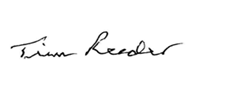 Tim Reeder